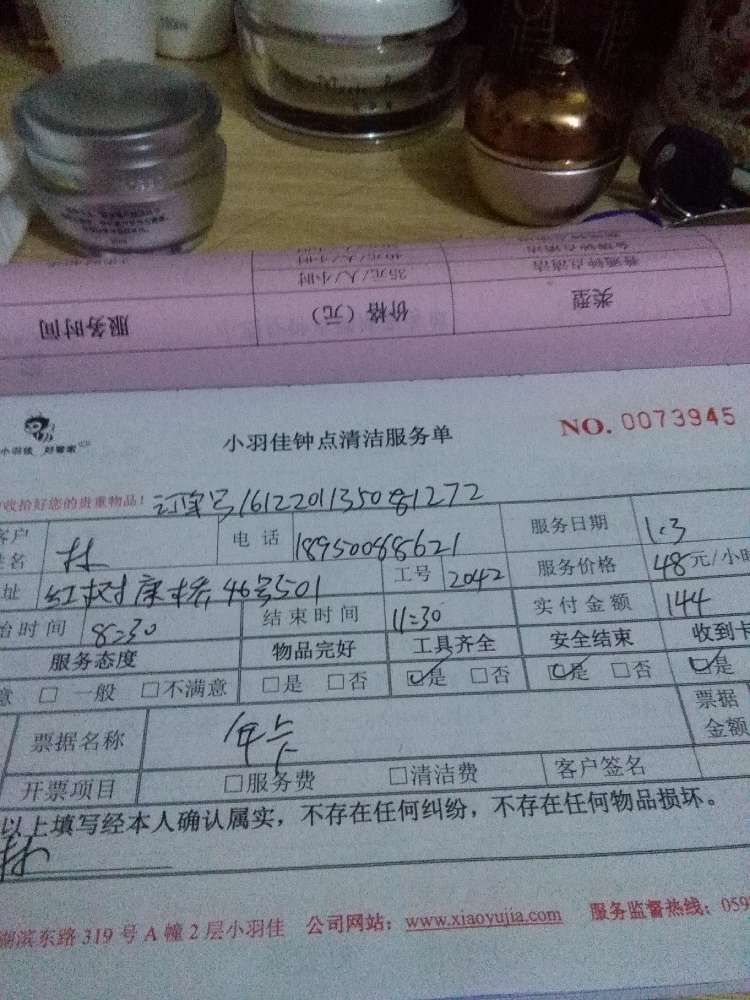 服务时间 价格（元） 类型
35元/人/小时 普通钟点清洁
小羽佳 好管家
小羽佳钟点清洁服务单 NO. 0073945
收拾好您的贵重物品！ 订单号1612201135081272
客户姓名 林 电话 18950088621 服务日期 1.3
址 红树康桥 46号501 工号 2042 服务价格 48元/小时
始时间 8:30 结束时间 11:30 实付金额 144
服务态度 物品完好 工具齐全 安全结束 收到卡
意 □ 一般 □不满意 □是 □否 ☑是 □否 ☑是 □否 ☑是
票据名称 年卡 票据金额
开票项目 □服务费 □清洁费 客户签名
以上填写经本人确认属实，不存在任何纠纷，不存在任何物品损坏。
林
湖滨东路 319 号 A 幢 2 层小羽佳 公司网站：www.xiaoyujia.com 服务监督热线：059